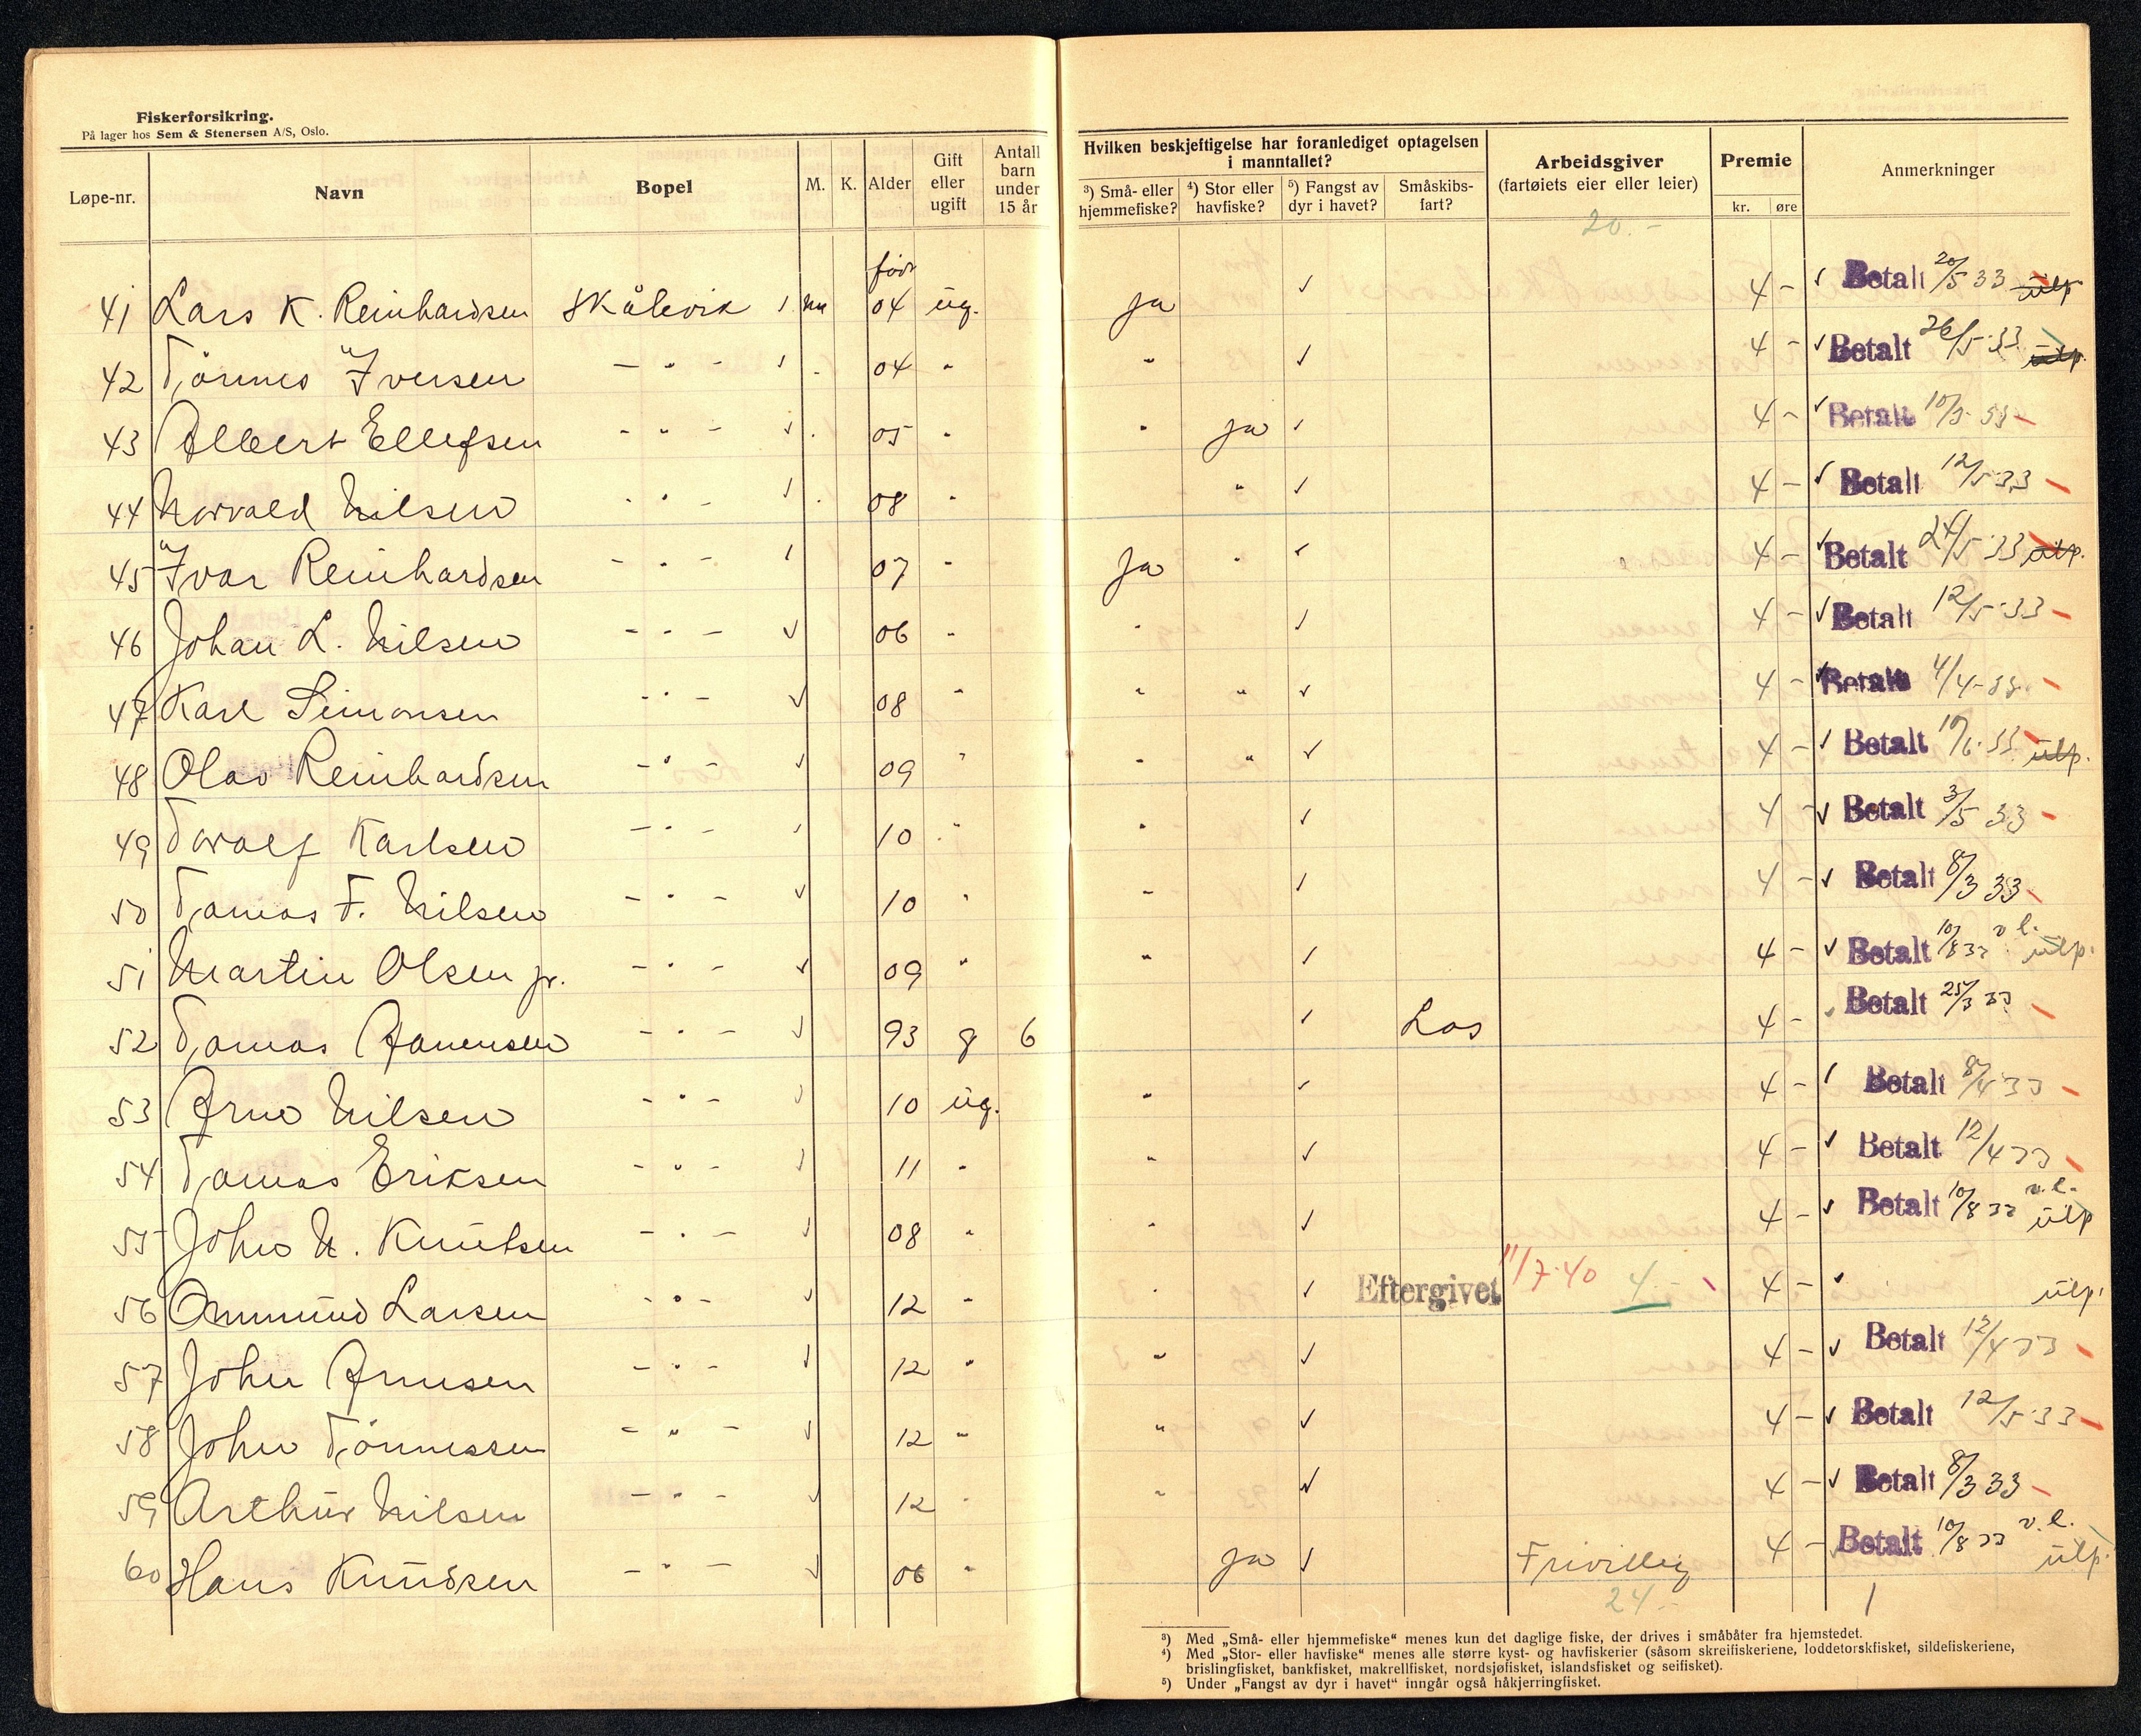 Fiskerforsikring.
På lager hos Sem & Stenersen A/S, Oslo.
Løpe-nr. Navn Bopel M. K. Alder Gift eller ugift Antall barn under 15 år
Hvilken beskjeftigelse har foranlediget optagelsen i manntallet?
³) Små- eller hjemmefiske? ⁴) Stor eller havfiske? ⁵) Fangst av dyr i havet? Småskibs-fart?
Arbeidsgiver (fartøiets eier eller leier) Premie kr. øre Anmerkninger
20.-
født
41 Lars K. Reinhardsen Skålevik ✓ m 04 ug. ja ✓ 4 - ✓ Betalt 20/5 33 ulp.
42 Tønnes Iversen - " - ✓ . 04 " " ✓ 4 - ✓ Betalt 26/5-33 ulp.
43 Albert Ellefsen - " - ✓ . 05 " " ja ✓ 4 - ✓ Betalt 10/5-33
44 Norvald Nilsen - " - ✓ . 08 " " ✓ 4 - ✓ Betalt 12/5 33
45 Ivar Reinhardsen - " - ✓ 07 " Ja " ✓ 4 - ✓ Betalt 24/5-33 ulp.
46 Johan L. Nilsen - " - ✓ 06 " " ✓ 4 - ✓ Betalt 12/5-33
47 Karl Simonsen - " - ✓ 08 " " " ✓ 4 - ✓ Betalt 4/4-33
48 Olav Reinhardsen - " - ✓ 09 " " " ✓ 4 - ✓ Betalt 19/6-33 ulp.
49 Torolf Karlsen - " - ✓ 10 " " ✓ 4 - ✓ Betalt 3/5 33
50 Tomas F. Nilsen - " - ✓ 10 " " ✓ 4 - ✓ Betalt 8/3 33
51 Martin Olsen jr. - " - ✓ 09 " " ✓ 4 - ✓ Betalt 10/8 33 v.l. ulp.
52 Tomas Aanensen - " - ✓ 93 g 6 ✓ Los 4 - Betalt 25/3 33
53 Arne Nilsen - " - ✓ 10 ug. " ✓ 4 - ✓ Betalt 8/4 33
54 Tomas Eriksen - " - ✓ 11 " " ✓ 4 - ✓ Betalt 12/4 33
55 John N. Knutsen - " - ✓ 08 " " ✓ 4 - ✓ Betalt 10/8 33 v.l. ulp
56 Ommund Larsen - " - ✓ 12 " " ✓ Eftergivet 11/7-40 4.- 4 - ✓ ulp.
57 John Arnesen - " - ✓ 12 " " ✓ 4 - ✓ Betalt 12/4 33
58 John Tønnessen - " - ✓ 12 " " ✓ 4 - ✓ Betalt 12/5-33
59 Arthur Nilsen - " - ✓ 12 " " ✓ 4 - ✓ Betalt 8/3 33
60 Hans Knudsen - " - ✓ 06 " ja ✓ Frivillig 4 - Betalt 10/8 33 v.l. ulp.
24.-
³) Med „Små- eller hjemmefiske“ menes kun det daglige fiske, der drives i småbåter fra hjemstedet.
⁴) Med „Stor- eller havfiske“ menes alle større kyst- og havfiskerier (såsom skreifiskeriene, loddetorskfisket, sildefiskeriene,
brislingfisket, bankfisket, makrellfisket, nordsjøfisket, islandsfisket og seifisket).
⁵) Under „Fangst av dyr i havet“ inngår også håkjerringfisket.